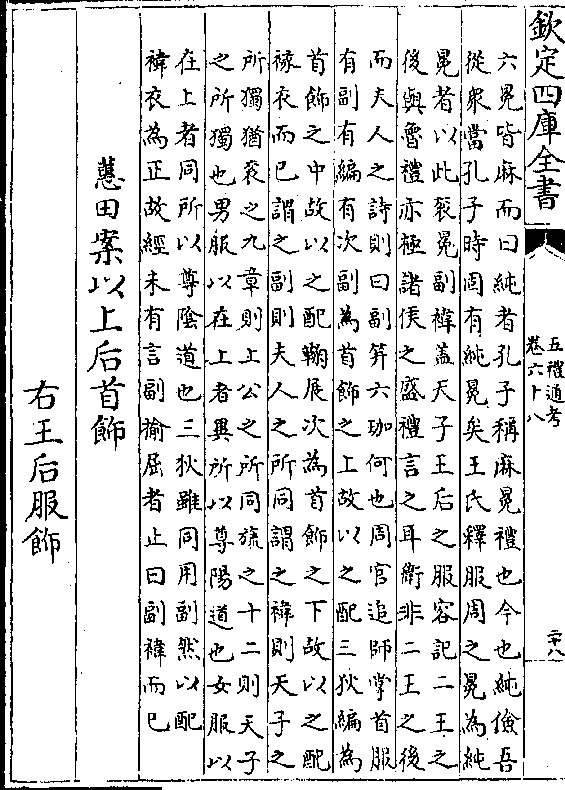 欽定四庫全書
五禮通考
卷六十八
六冕皆麻而曰純者孔子稱麻冕禮也今也純儉吾
從衆當孔子時固有純冕矣王氏釋服周之冕為純
冕者以此袞冕副褘蓋天子王后之服容記二王之
後與魯禮亦極諸侯之盛禮言之耳衛非二王之後
而夫人之詩則曰副笄六珈何也周官追師掌首服
有副有編有次副為首飾之上故以之配三狄編為
首飾之中故以之配鞠展次為首飾之下故以之配
褖衣而已謂之副則夫人之所同謂之褘則天子之
所獨猶袞之九章則上公之所同旒之十二則天子
之所獨也男服以在上者異所以尊陽道也女服以
在上者同所以尊陰道也三狄雖同用副然以配
褘衣為正故經未有言副揄屈者止曰副褘而已
蕙田案以上后首飾
右王后服飾